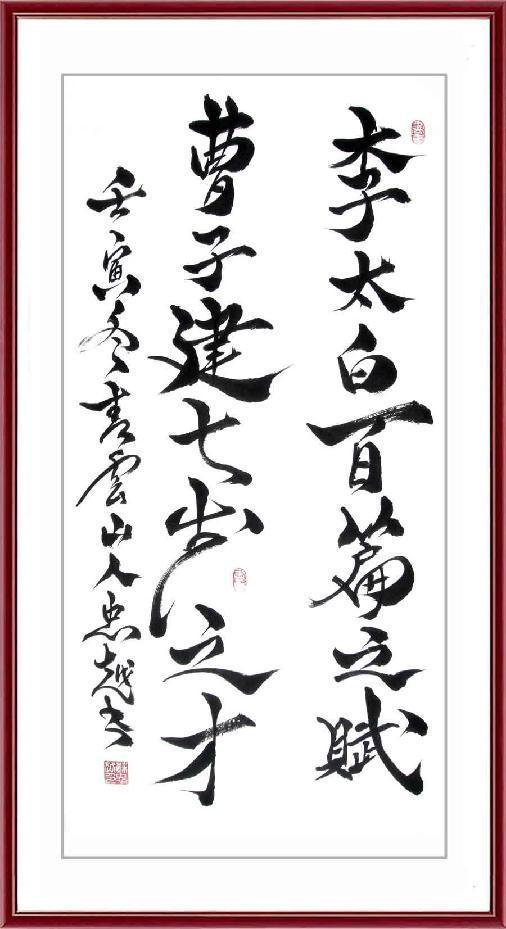 李太白百篇之賦
曹子建七步之才
壬寅冬青雲山人忠越书